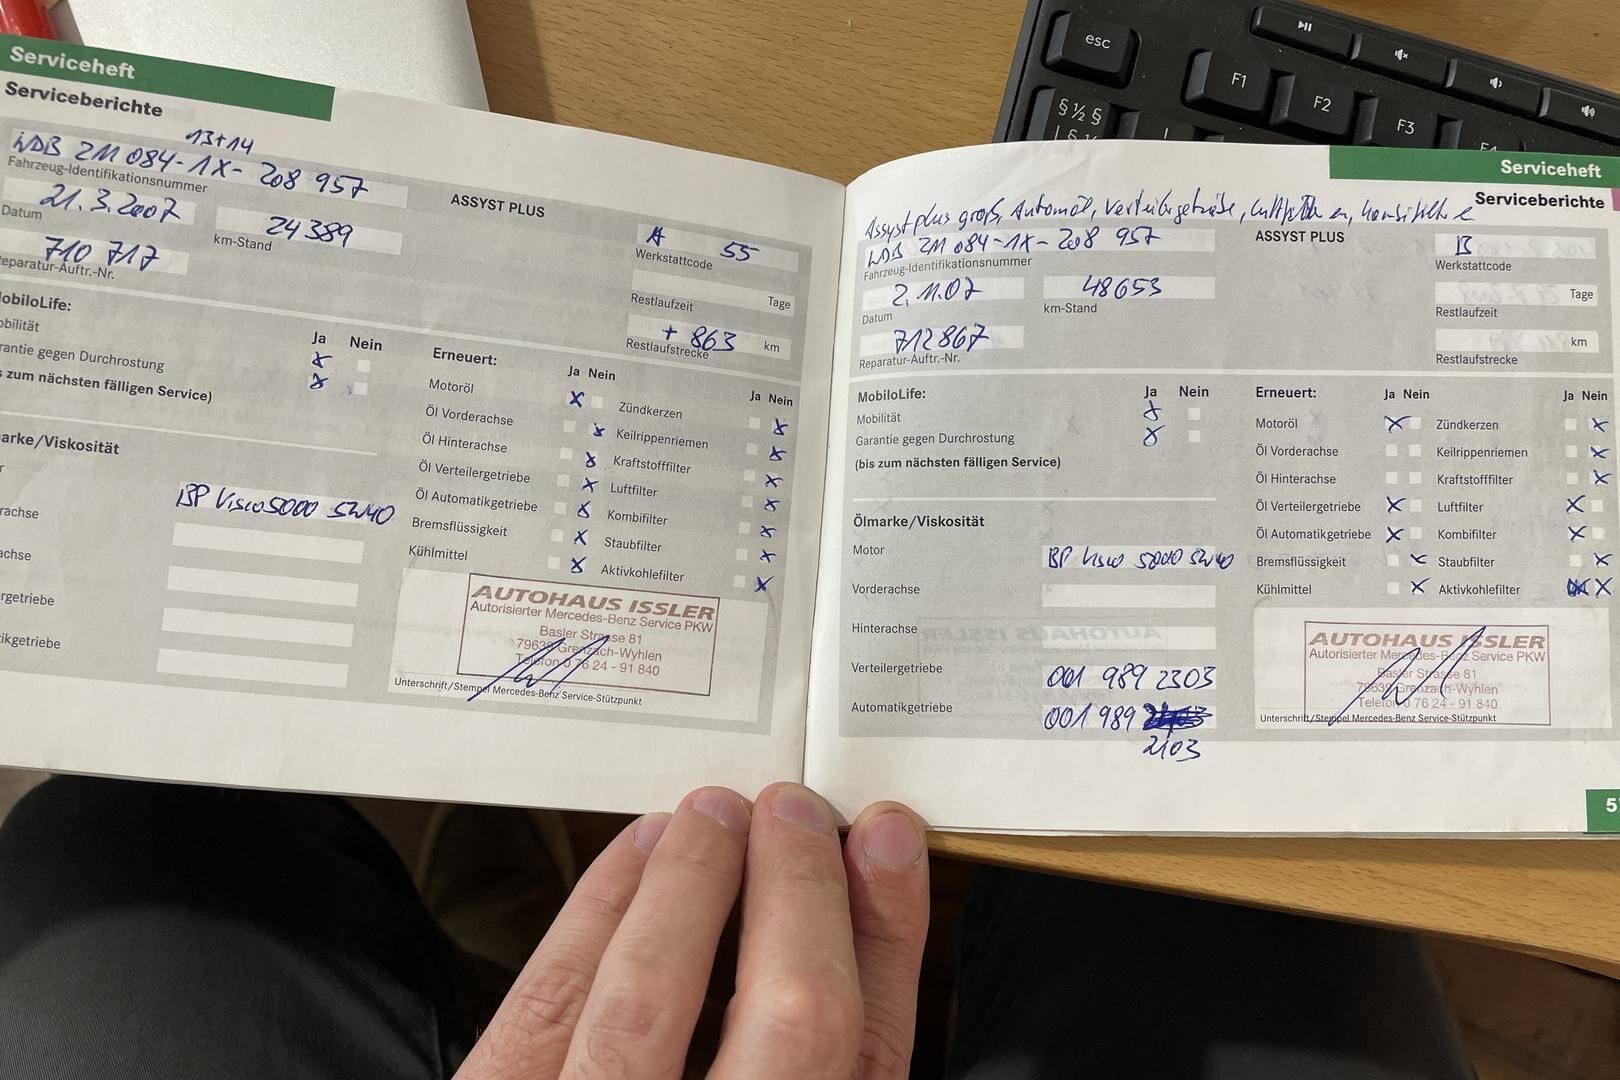 Serviceheft
Serviceberichte
13+14
WDB 211 084-1X- 208 957
Fahrzeug-Identifikationsnummer
ASSYST PLUS
21.3.2007
Datum
24389
km-Stand
A 55
Werkstattcode
710 717
Reparatur-Auftr.-Nr.
Tage
Restlaufzeit
+ 863 km
Restlaufstrecke
MobiloLife:
Ja Nein
Mobilität
Garantie gegen Durchrostung
(bis zum nächsten fälligen Service)
Erneuert:
Ja Nein
Ja Nein
Motoröl X
Zündkerzen X
Öl Vorderachse X
Keilrippenriemen X
Öl Hinterachse X
Kraftstofffilter X
Öl Verteilergetriebe X
Luftfilter X
Öl Automatikgetriebe X
Kombifilter X
Bremsflüssigkeit X
Staubfilter X
Kühlmittel X
Aktivkohlefilter X
Ölmarke/Viskosität
BP Visco 5000 5W40
AUTOHAUS ISSLER
Autorisierter Mercedes-Benz Service PKW
Basler Strasse 81
79639 Grenzach-Wyhlen
Telefon 0 76 24 - 91 840
Unterschrift/Stempel Mercedes-Benz Service-Stützpunkt
esc
F1
F2
F3
F4
§ ½ §
Serviceheft
Serviceberichte
Assyst plus groß, Automöl, Verteilergetriebe,
WDB 211 084-1X- 208 957
Fahrzeug-Identifikationsnummer
ASSYST PLUS
B
Werkstattcode
2.11.07
Datum
48653
km-Stand
Tage
Restlaufzeit
712867
Reparatur-Auftr.-Nr.
km
Restlaufstrecke
MobiloLife:
Ja Nein
Mobilität X
Garantie gegen Durchrostung X
(bis zum nächsten fälligen Service)
Erneuert:
Ja Nein
Ja Nein
Motoröl X
Zündkerzen X
Öl Vorderachse
Keilrippenriemen X
Öl Hinterachse
Kraftstofffilter X
Öl Verteilergetriebe X
Luftfilter X
Öl Automatikgetriebe X
Kombifilter X
Bremsflüssigkeit X
Staubfilter X
Kühlmittel X
Aktivkohlefilter X
Ölmarke/Viskosität
Motor BP Visco 5000 5W40
Vorderachse
Hinterachse
Verteilergetriebe 001 989 2303
Automatikgetriebe 001 989
2103
AUTOHAUS ISSLER
Autorisierter Mercedes-Benz Service PKW
Basler Strasse 81
79639 Grenzach-Wyhlen
Telefon 0 76 24 - 91 840
Unterschrift/Stempel Mercedes-Benz Service-Stützpunkt